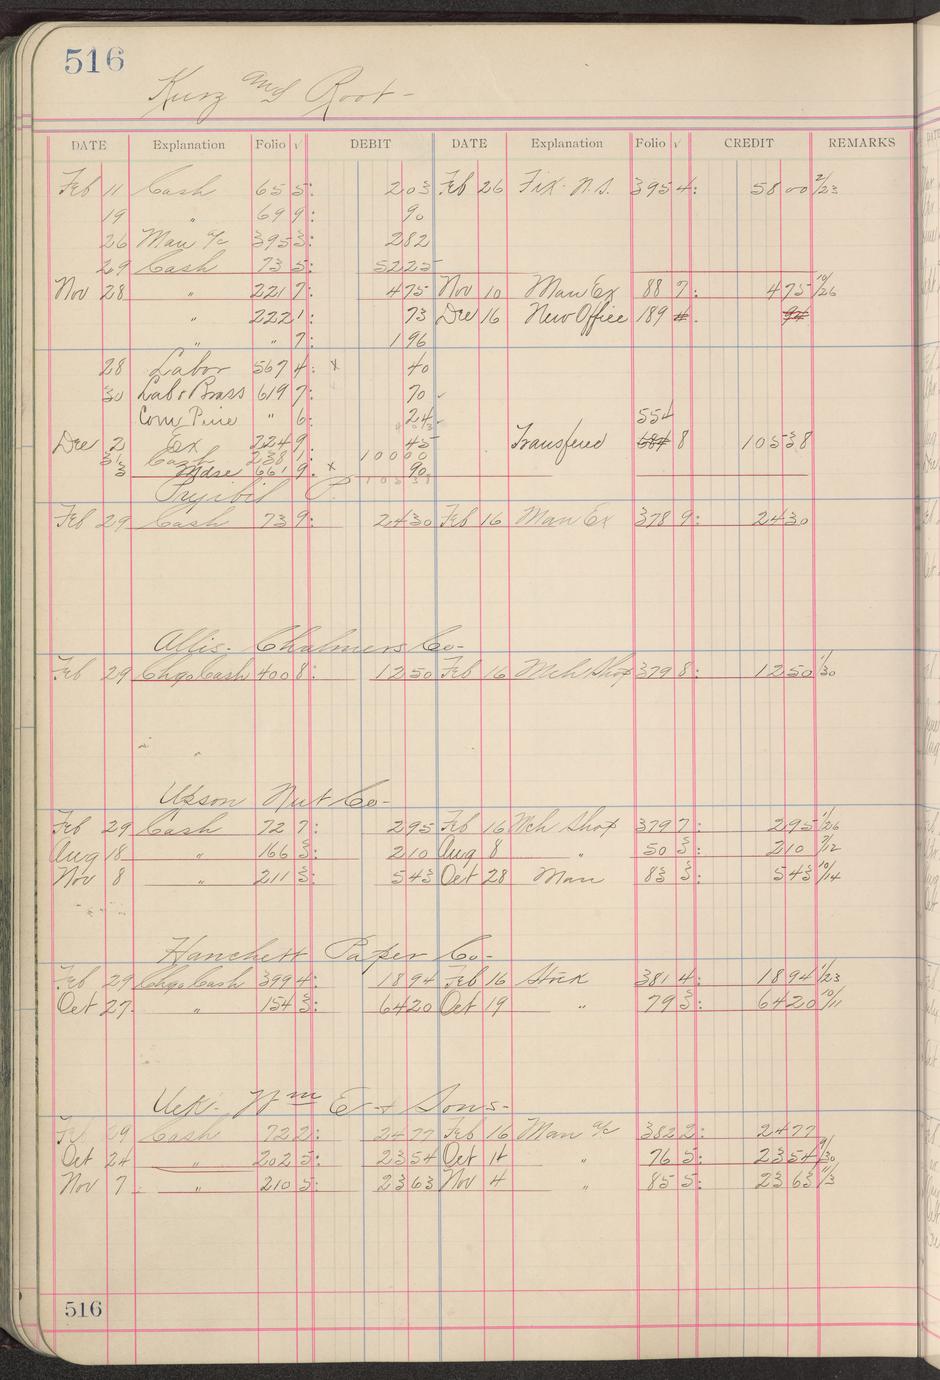 516
Kurz and Root-
DATE Explanation Folio √ DEBIT DATE Explanation Folio √ CREDIT REMARKS
Feb 11 Cash 65 5: 2 03 Feb 26 Fix. N.S. 395 4: 58 00 2/23
19 " 69 9: 90
26 Man a/c 395 3: 2 82
29 Cash 73 5: 52 25
Nov 28 " 221 7: 4 75 Nov 10 Man Ex 88 7: 4 75 10/26
" 222 1: 73 Dec 16 New Office 189
" " 7: 1 96
28 Labor 567 4: x 40
30 Labor Brass 619 7: 70
Com Pine " 6: 24 554
Dec 2 Ex 224 9: 45 Transfered 684 8 105 38
31 Cash 238 1: 100 00
3 Mdse 661 9: x 90
Pryibil P. 103 38
Feb 29 Cash 73 9: 24 30 Feb 16 Man Ex 378 9: 24 30
Allis-Chalmers Co-
Feb 29 Chgo Cash 400 8: 12 50 Feb 16 Mch Shop 379 8: 12 50 1/30
Upson Nut Co-
Feb 29 Cash 72 7: 2 95 Feb 16 Mch Shop 379 7: 2 95 1/26
Aug 18 " 166 3: 2 10 Aug 8 " 50 3: 2 10 7/12
Nov 8 " 211 3: 5 43 Oct 28 Man 83 3: 5 43 10/14
Hanchett Paper Co-
Feb 29 Chgo Cash 399 4: 18 94 Feb 16 Stock 381 4: 18 94 1/23
Oct 27 " 154 3: 64 20 Oct 19 " 79 3: 64 20 10/11
Uek- Wm E + Sons-
Feb 29 Cash 72 2: 24 77 Feb 16 Man a/c 382 2: 24 77
Oct 24 " 202 5: 23 54 Oct 14 " 76 5: 23 54 9/30
Nov 7 " 210 5: 23 63 Nov 4 " 85 5: 23 63 11/3
516